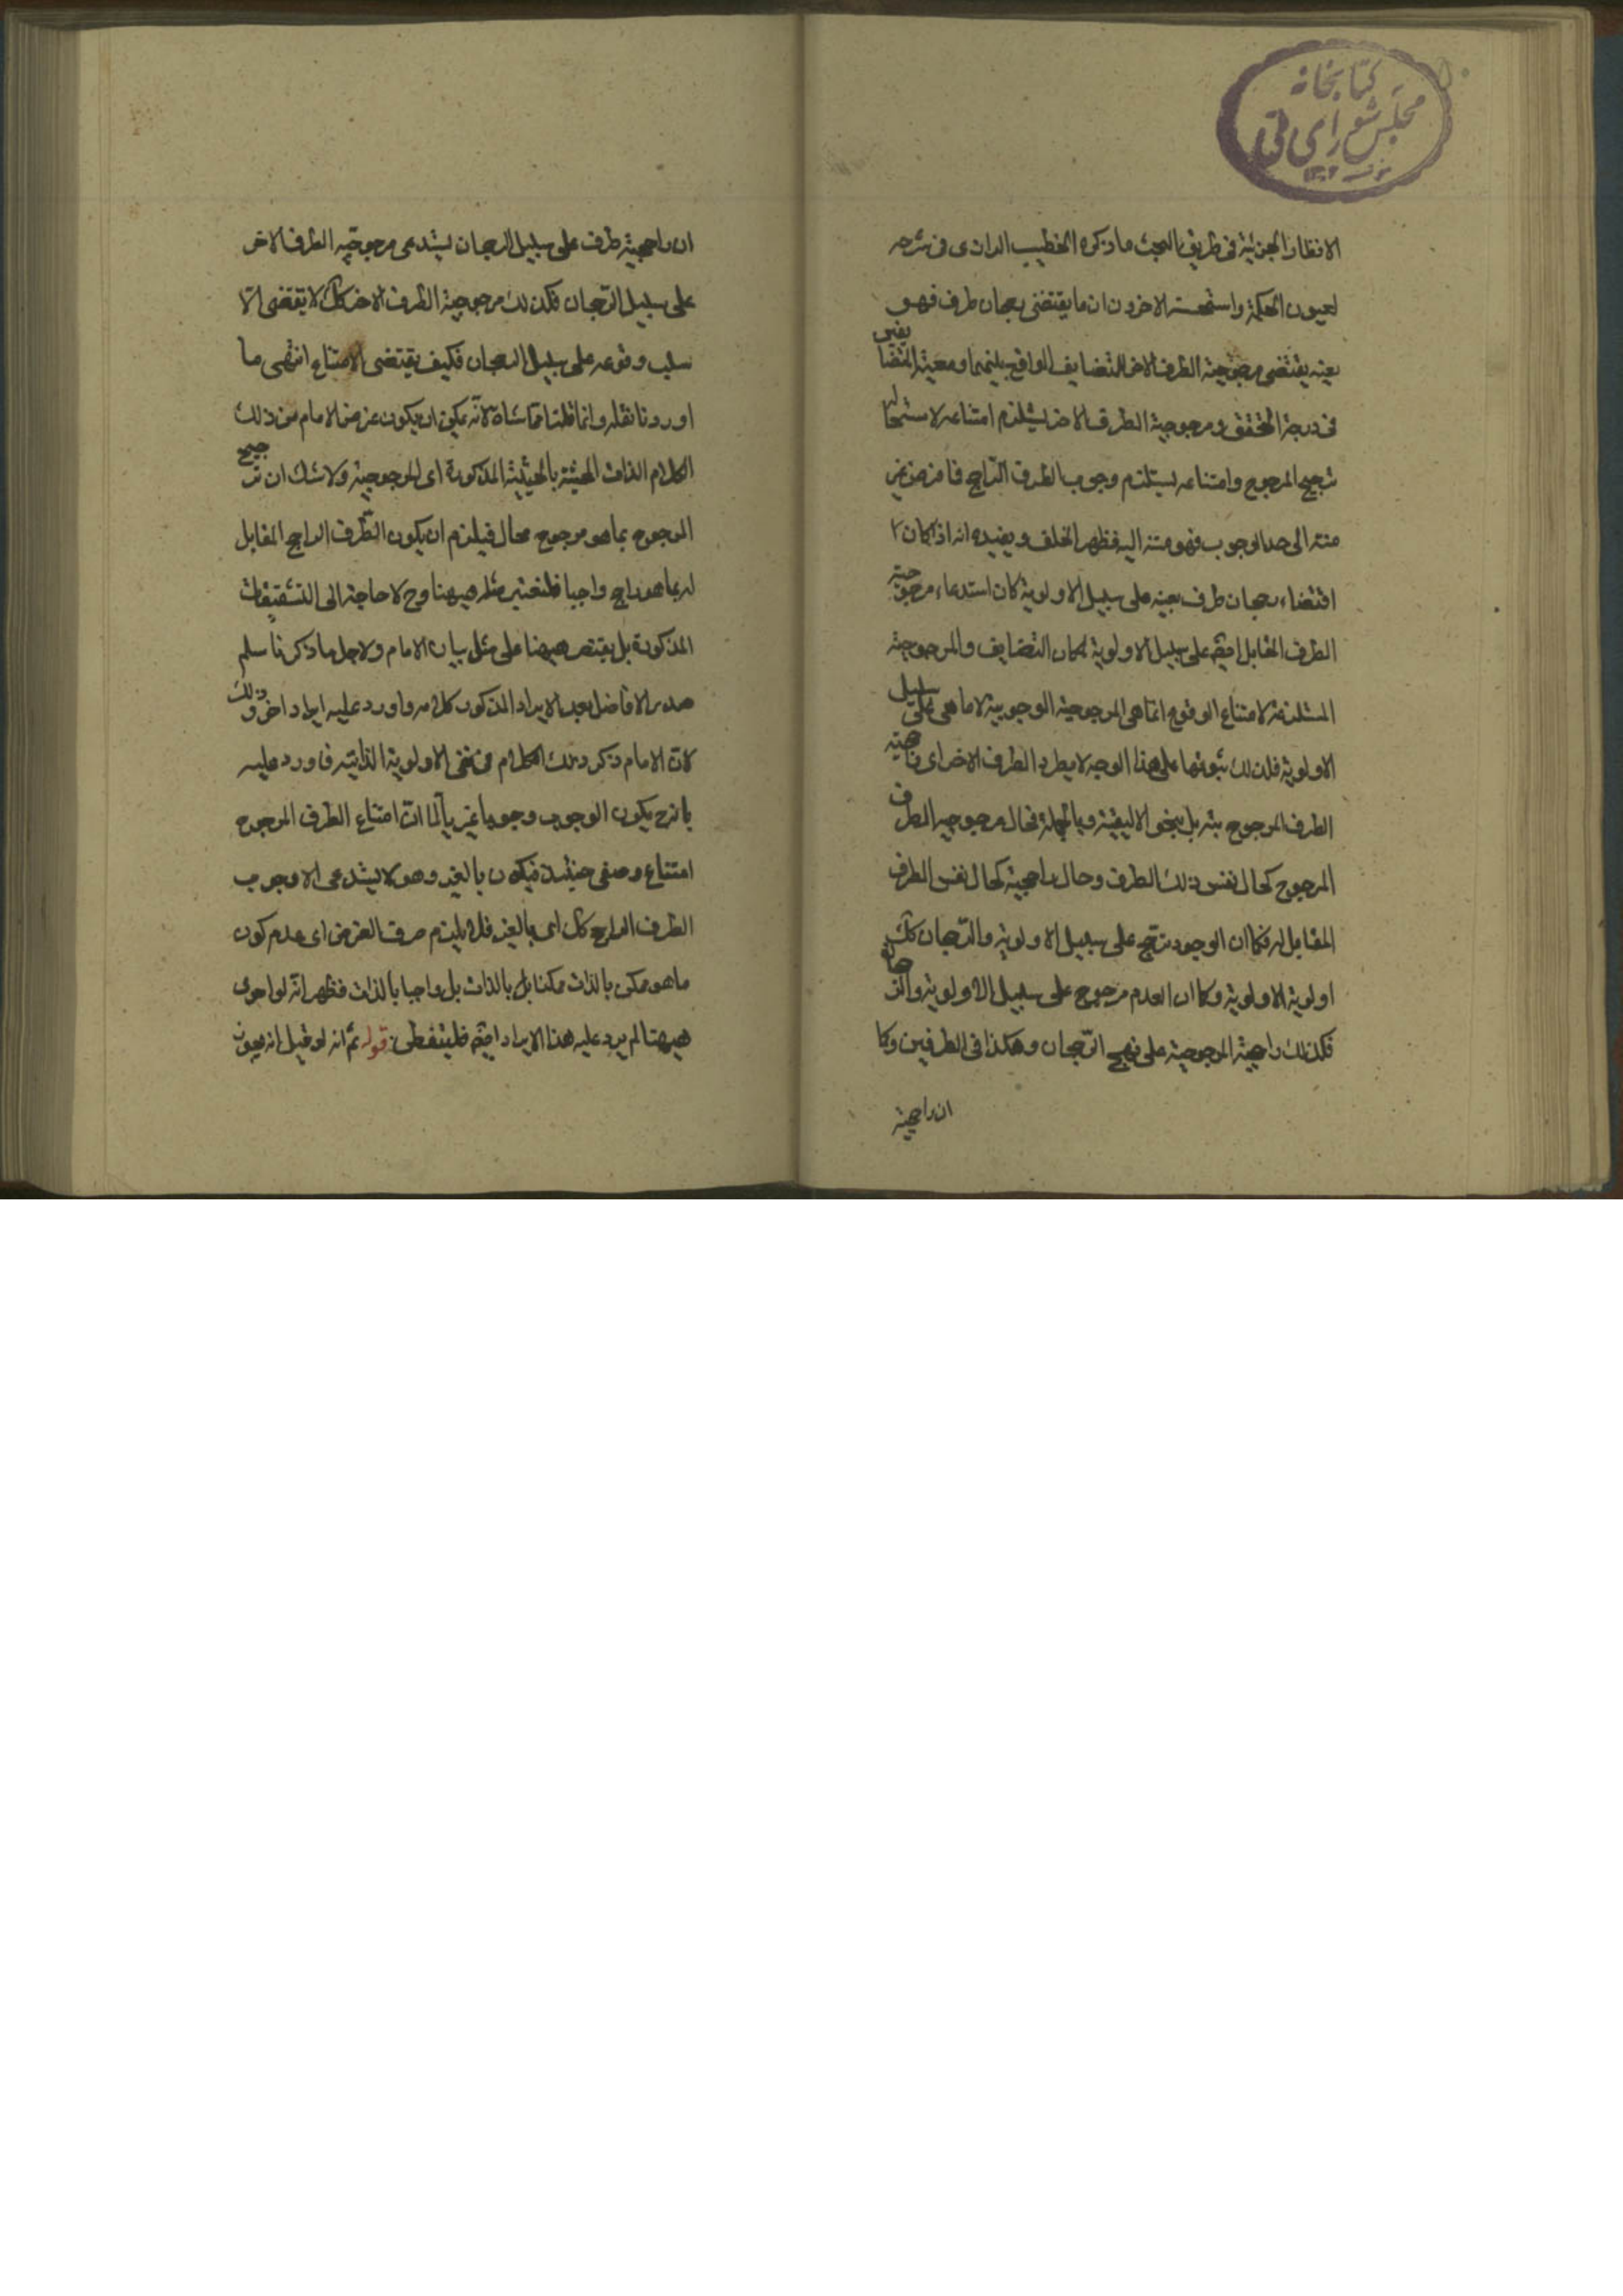 كتابخانه
مجلس شورای ملی
الانظار الجزئية في طريق البحث ما ذكره الخطيب الرازى فى شرحه
لعيون الحكمة واستحسنه الاخرون ان ما يقتضى رجحان طرف فهو
بعينه يقتضى مرجوحية الطرف الاخر للتضايف الواقع بينهما ومعية المتضايفين
فى درجة التحقق ومرجوحية الطرف الاخر يستلزم امتناعه لاستحالة
ترجيح المرجوح وامتناعه يستلزم وجوب الطرف الراجح فما فرض غير
منته الى حد الوجوب فهو منته اليه فظهر الخلف ويفيده انه اذا كان
اقتضاء رجحان طرف بعينه على سبيل الاولوية كان استدعاء مرجوحية
الطرف المقابل ايضا على سبيل الاولوية لمكان التضايف والمرجوحية
المستلزمة لامتناع الوقوع انما هى المرجوحية الوجوبية لا ما هى على سبيل
الاولوية فلذلك ثبوتها على هذا الوجه لا يطرد الطرف الاخر اى
الطرف المرجوح بتة بل بنحو الاليقية وبالجملة فحال مرجوحية الطرف
المرجوح كحال نفس ذلك الطرف وحال راجحية كحال نفس الطرف
المقابل له فكما ان الوجود يترجح على سبيل الاولوية والرجحان كك
اولوية الاولوية وكما ان العدم مرجوح على سبيل الاولوية والرجحان
فكذلك راجحية المرجوحية على نهج الرجحان وهكذا فى الطرفين وكما
ان راجحية
ان راجحية طرف على سبيل الرجحان يستدعى مرجوحية الطرف الاخر
على سبيل الرجحان فكذلك مرجوحية الطرف الاخر كك لا يقتضى الا
سلب وقوعه على سبيل الرجحان فكيف يقتضى الامتناع انتهى ما
اوردنا نقله وانما قلنا مماشاة لانه يمكن ان يكون غرض الامام من ذلك
الكلام الذات المحيثة بالحيثية المذكورة اى المرجوحية ولا شك ان ترجيح
المرجوح بما هو مرجوح محال فيلزم ان يكون الطرف الراجح المقابل
له بما هو راجح واجبا فلنعتبر مثله هيهنا وح لا حاجة الى التشقيقات
المذكورة بل يقتصر هيهنا على مثل بيان الامام ولاجل ما ذكرنا سلم
صدر الافاضل بعد الايراد المذكور كلامه واورد عليه ايراد اخر وذلك
لان الامام ذكر ذلك الكلام فى نفى الاولوية الذاتية فاورد عليه
بانه ح يكون الوجوب وجوبا غيريا لما ان امتناع الطرف المرجوح
امتناع وصفى حينئذ فيكون بالغير وهو لا يستدعى الا وجوب
الطرف الراجح كك اى بالغير فلا يلزم خرق الفرض اى عدم كون
ما هو ممكن بالذات ممكنا بل بالذات بل واجبا بالذات فظهر انه لو اجرى
هيهنا لم يرد عليه هذا الايراد ايضا فليتفطن قوله ثم انه لو قيل انه